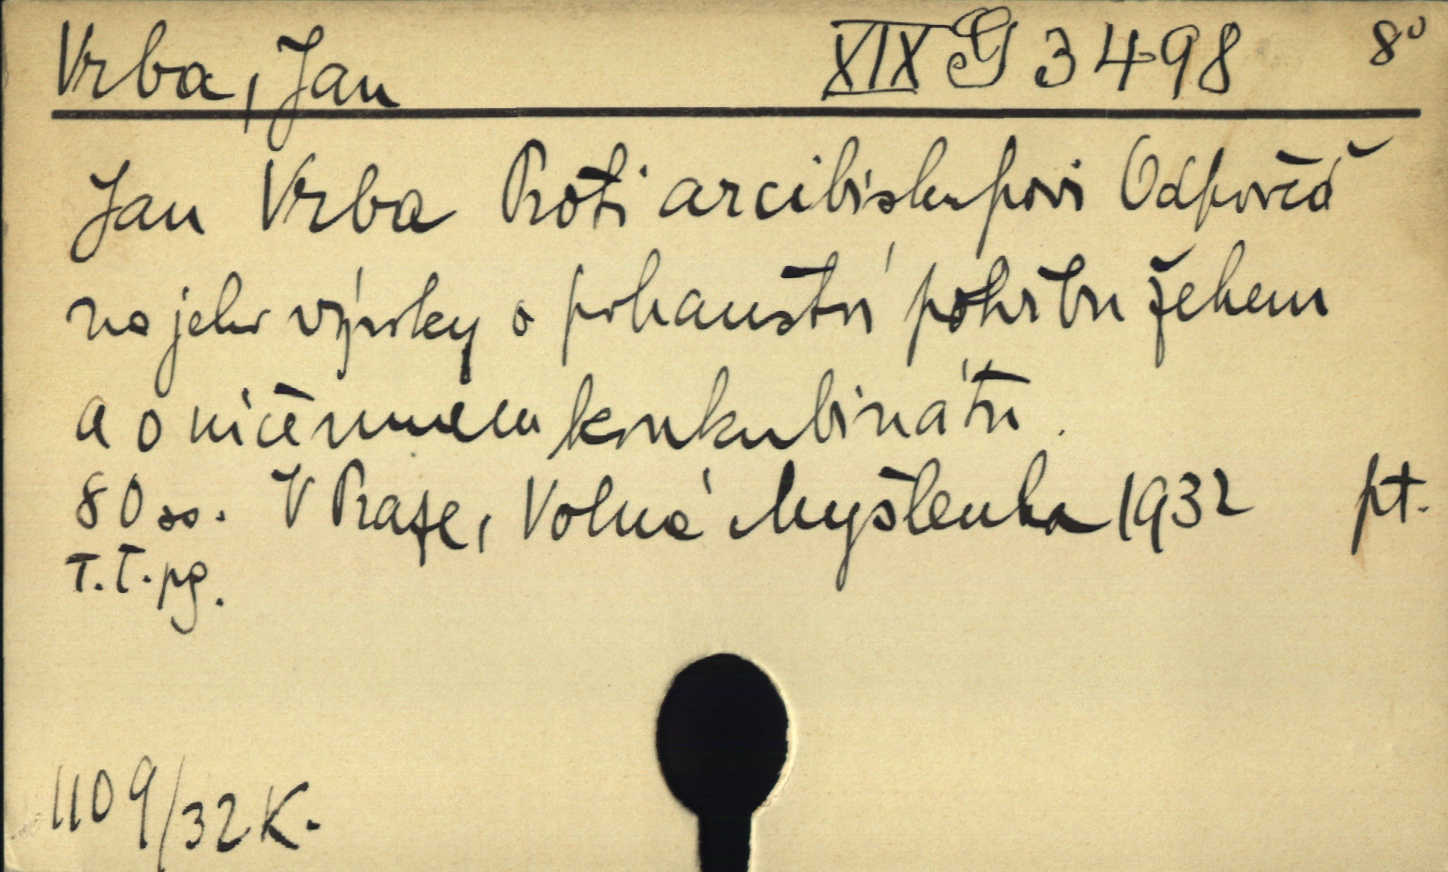 Vrba, Jan XIX G 3498 8°
Jan Vrba Proti arcibiskupovi Odpověď
na jeho výroky o pohanství pohřbu žehem
a o ničemném konkubinátu.
80 ss. V Praze, Volná Myšlenka 1932 pt.
T.T. pg.
1109/32 K.